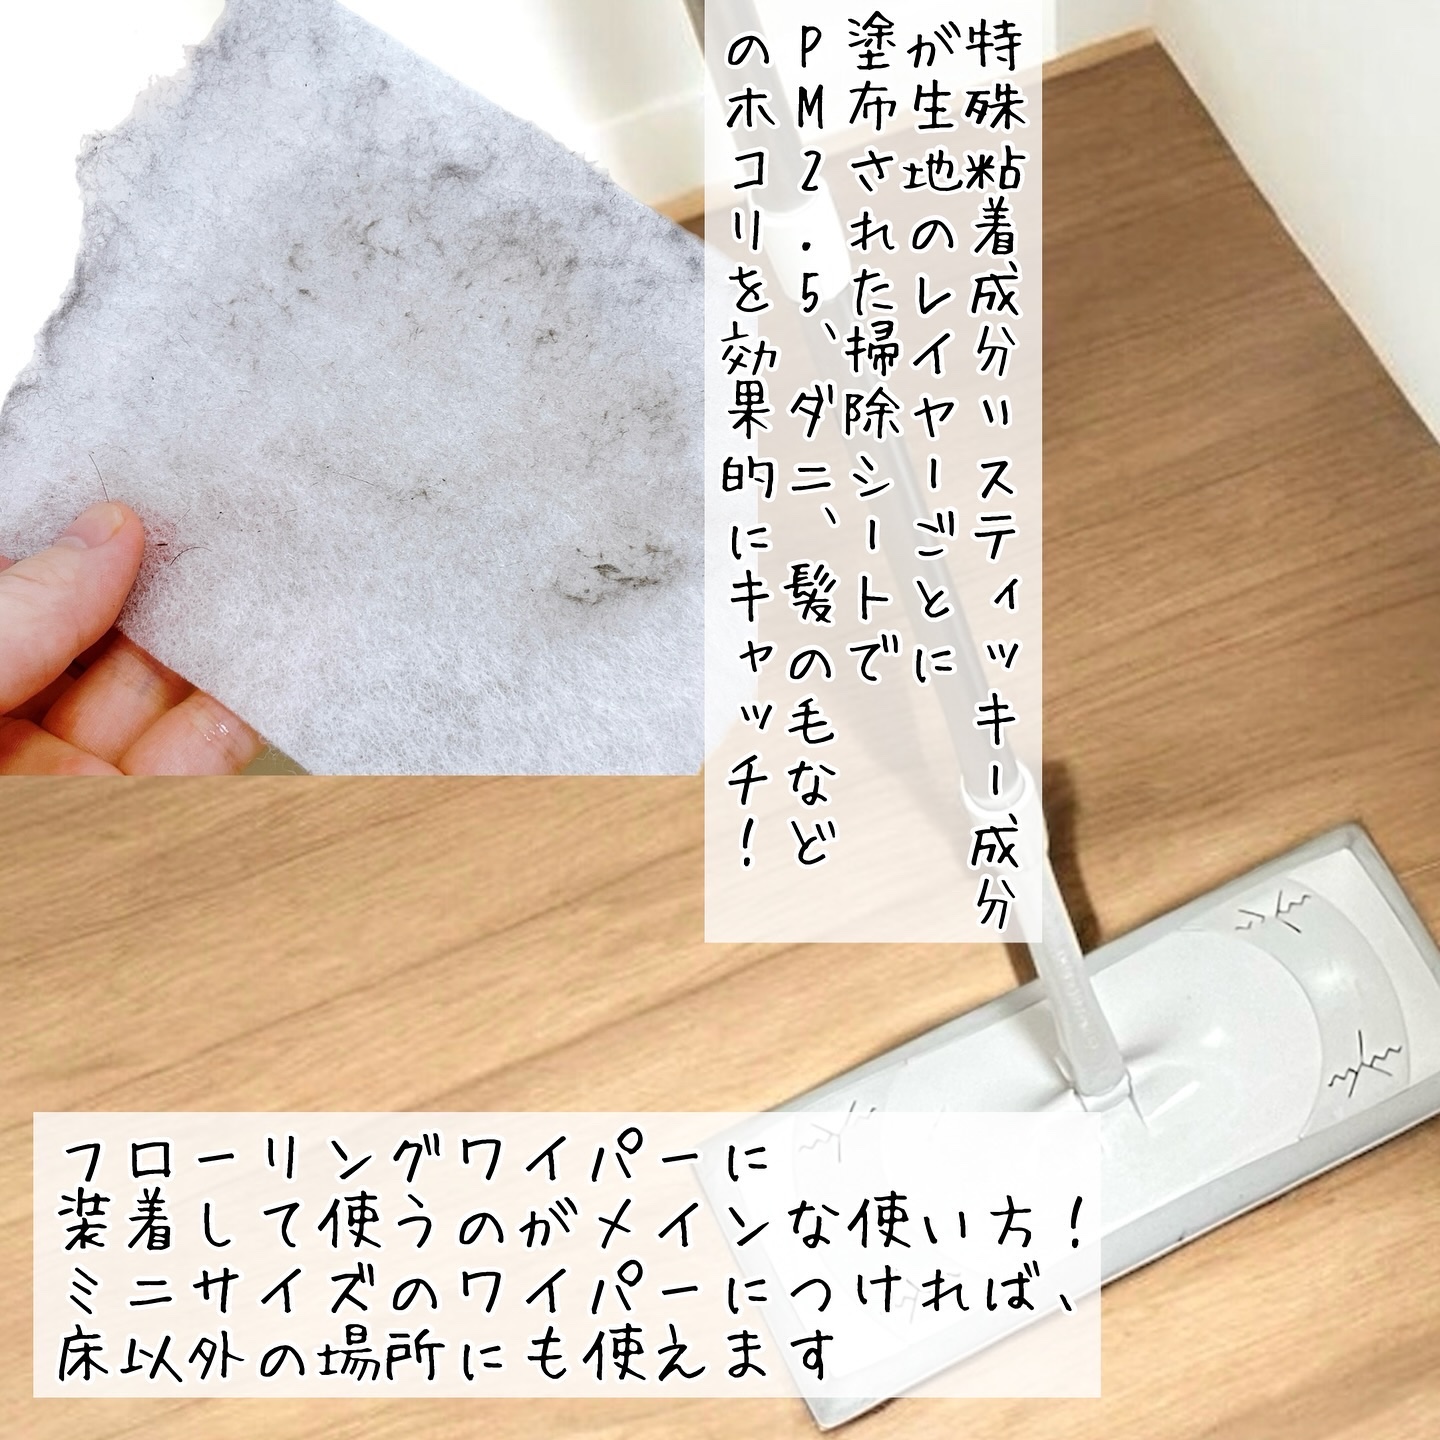 特殊粘着成分"スティッキー成分
が生地のレイヤーごとに
塗布された掃除シートで
PM2.5、ダニ、髪の毛など
のホコリを効果的にキャッチ！
フローリングワイパーに
装着して使うのがメインな使い方！
ミニサイズのワイパーにつければ、
床以外の場所にも使えます